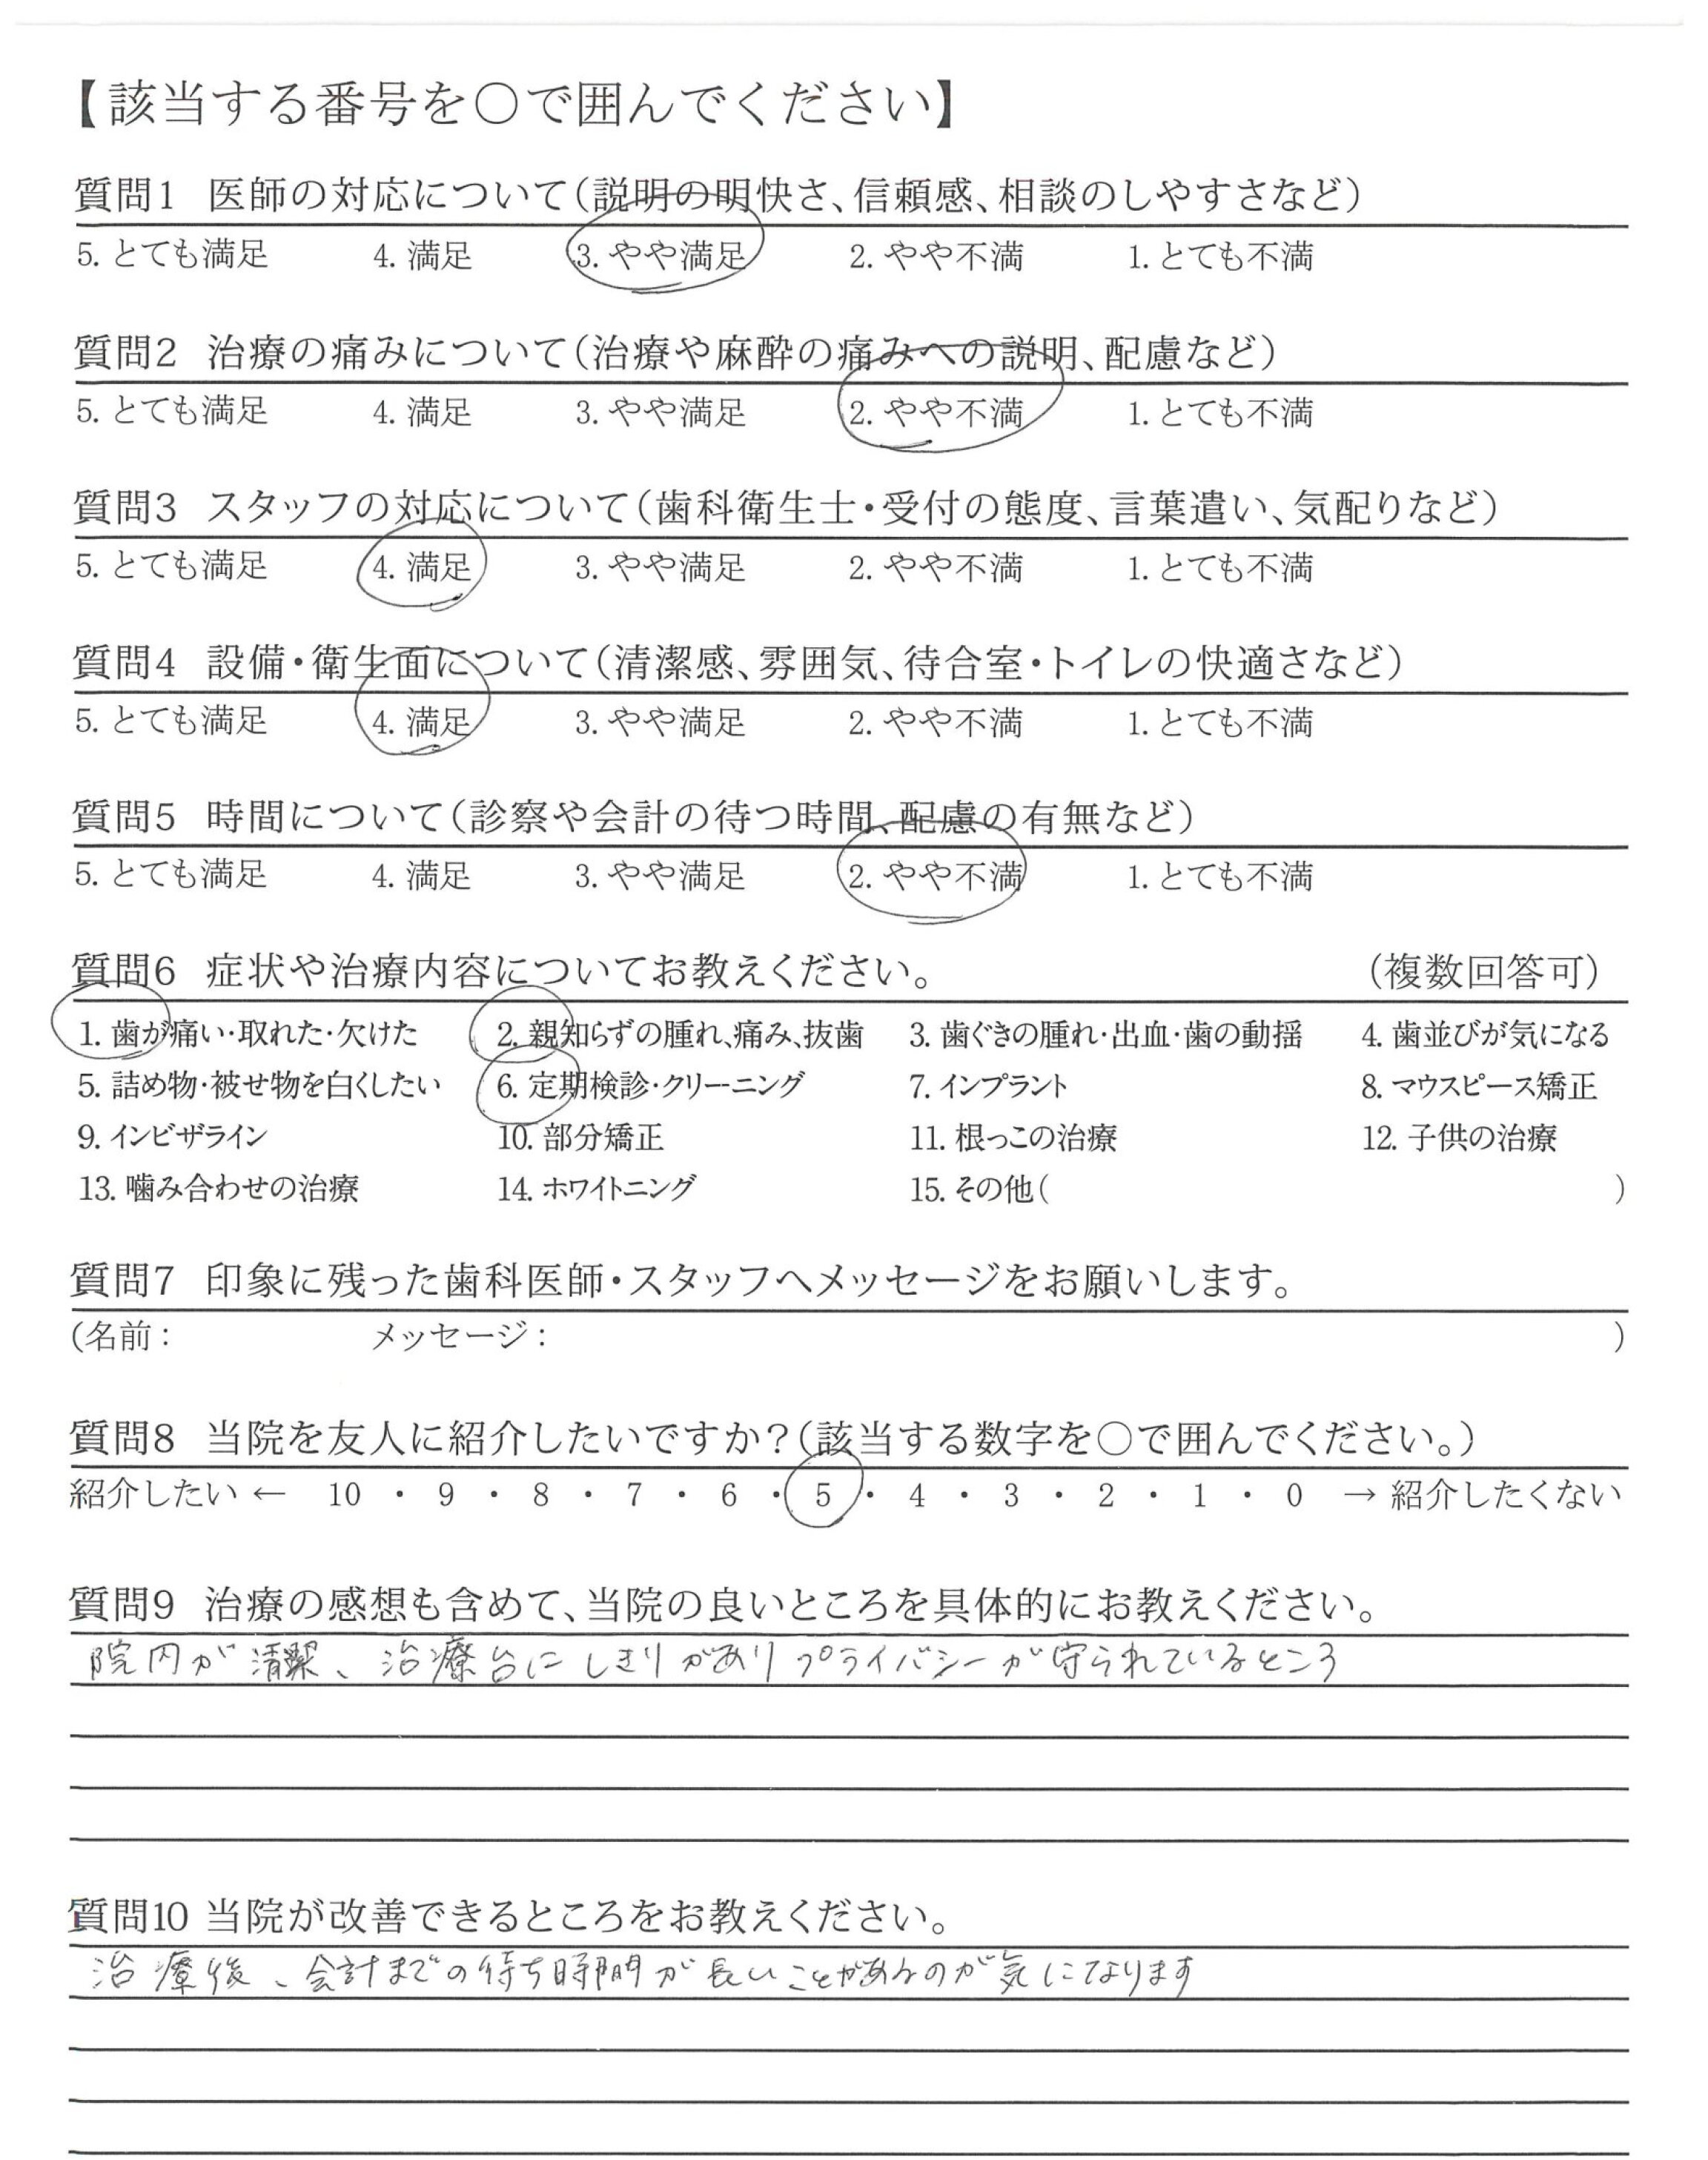 【該当する番号を○で囲んでください】
質問1 医師の対応について(説明の明快さ、信頼感、相談のしやすさなど)
5. とても満足 4. 満足 3. やや満足 2. やや不満 1. とても不満
質問2 治療の痛みについて(治療や麻酔の痛みへの説明、配慮など)
5. とても満足 4. 満足 3. やや満足 2. やや不満 1. とても不満
質問3 スタッフの対応について(歯科衛生士・受付の態度、言葉遣い、気配りなど)
5. とても満足 4. 満足 3. やや満足 2. やや不満 1. とても不満
質問4 設備・衛生面について(清潔感、雰囲気、待合室・トイレの快適さなど)
5. とても満足 4. 満足 3. やや満足 2. やや不満 1. とても不満
質問5 時間について(診察や会計の待つ時間、配慮の有無など)
5. とても満足 4. 満足 3. やや満足 2. やや不満 1. とても不満
質問6 症状や治療内容についてお教えください。 (複数回答可)
1. 歯が痛い・取れた・欠けた 2. 親知らずの腫れ、痛み、抜歯 3. 歯ぐきの腫れ・出血・歯の動揺 4. 歯並びが気になる
5. 詰め物・被せ物を白くしたい 6. 定期検診・クリーニング 7. インプラント 8. マウスピース矯正
9. インビザライン 10. 部分矯正 11. 根っこの治療 12. 子供の治療
13. 噛み合わせの治療 14. ホワイトニング 15. その他( )
質問7 印象に残った歯科医師・スタッフへメッセージをお願いします。
(名前: メッセージ: )
質問8 当院を友人に紹介したいですか?(該当する数字を○で囲んでください。)
紹介したい ← 10 ・ 9 ・ 8 ・ 7 ・ 6 ・ 5 ・ 4 ・ 3 ・ 2 ・ 1 ・ 0 → 紹介したくない
質問9 治療の感想も含めて、当院の良いところを具体的にお教えください。
院内が清潔、治療台にしきりがありプライバシーが守られているところ
質問10 当院が改善できるところをお教えください。
治療後、会計までの待ち時間が長いことがあるのが気になります